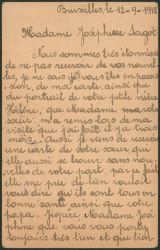 Bruxelles, le 12-9-1918
Madame Joséphine Sagot
Nous sommes très étonnées
de ne pas recevoir de vos nouvel-
les, je ne sais si vous êtes en posses-
sion, de ma carte, ainsi que
du portrait de votre petite nièce
Hélène, que Madame ma
sœur m'a remis lors de ma
visite que j'ai fait il y a trois
mois. Aussi je viens de recevoir
une carte de votre sœur qui
elle aussi se trouve sans nou-
velles de votre part, par ce fait
elle me prie de bien vouloir
vous dire qu'ils sont tous en
bonne santé ainsi que votre
papa. J'espère Madame José-
phine que vous vous portez
toujours très bien et que